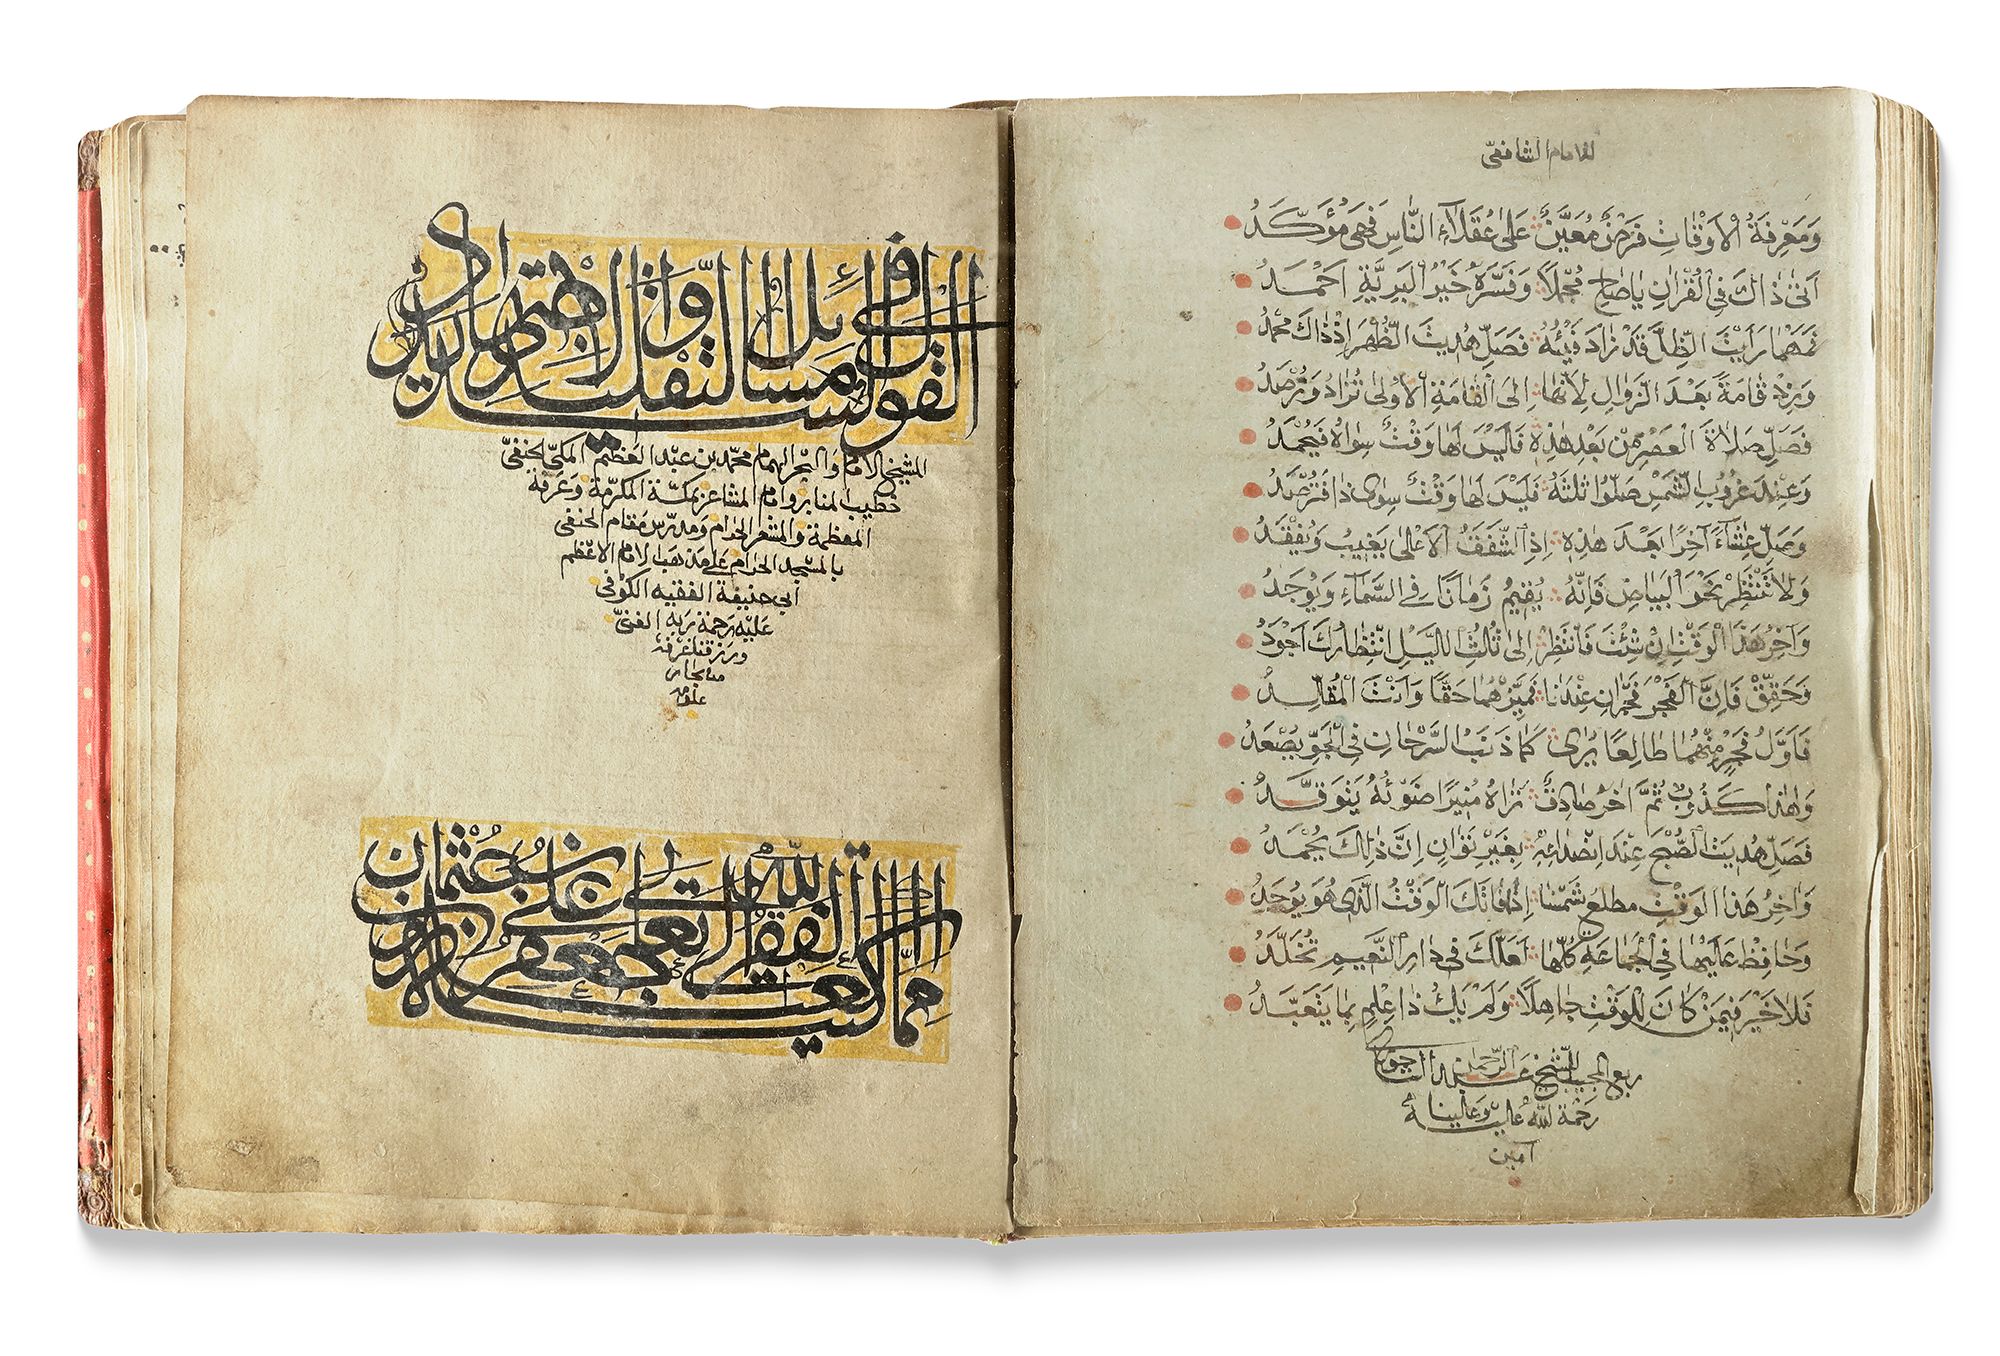 للامام الشافعي
وَمَعْرِفَةُ الاَوْقَاتِ فَرْضٌ مُعَيَّنٌ عَلَى عُقَلاَءِ النَّاسِ فَهِيَ مُؤَكَّدُ
اَتٰى ذَاكَ فِى الْقُرْاٰنِ يَاصَاحِ مُجْمَلاً وَفَسَّرَهُ خَيْرُ الْبَرِيَّةِ اَحْمَدُ
فَمَهْمَا رَاَيْتَ الظِّلَّ قَدْ زَادَ فَيْئُهُ فَصَلِّ هُدِيتَ الظُّهْرَ اِذْ ذَاكَ مُحَمَّدُ
وَزِدْ قَامَةً بَعْدَ الزَّوَالِ لِاَنَّهَا اِلَى الْقَامَةِ الْاُولٰى تُزَادُ وَتُرْصَدُ
فَصَلِّ صَلاَةَ الْعَصْرِ مِنْ بَعْدِ هٰذِهِ فَلَيْسَ لَهَا وَقْتٌ سِوَاهُ فَيُحْمَدُ
وَعِنْدَ غُرُوبِ الشَّمْسِ صَلُّوا ثَلٰثَةً فَلَيْسَ لَهَا وَقْتٌ سِوٰى ذَا فَتُرْصَدُ
وَصَلِّ عِشَاءً آخِرًا بَعْدَ هٰذِهِ اِذِ الشَّفَقُ الْاَعْلٰى يَغِيبُ وَيُفْقَدُ
وَلاَ تَنْتَظِرْ نَحْوَ الْبَيَاضِ فَاِنَّهُ يُقِيمُ زَمَانًا فِى السَّمَاءِ وَيُوجَدُ
وَآخِرُ هٰذَا الْوَقْتِ اِنْ شِئْتَ فَانْتَظِرْ اِلٰى ثُلُثِ اللَّيْلِ انْتِظَارُكَ اَجْوَدُ
وَحَقِّقْ فَاِنَّ الْفَجْرَ فَجْرَانِ عِنْدَنَا فَمَيِّزْهُمَا حَقًّا وَاَنْتَ الْمُقَلِّدُ
فَاَوَّلُ فَجْرٍ مِنْهُمَا طَالِعًا يُرٰى كَمَا ذَنَبُ السِّرْحَانِ فِى الْجَوِّ يَصْعَدُ
وَهٰذَا كَذُوبٌ ثُمَّ اٰخَرُ صَادِقٌ تَرَاهُ مُنِيرًا ضَوْئُهُ يَتَوَقَّدُ
فَصَلِّ هُدِيتَ الصُّبْحَ عِنْدَ ابْتِدَائِهِ بِغَيْرِ تَوَانٍ اِنَّ ذٰلِكَ يُحْمَدُ
وَاٰخِرُ هٰذَا الْوَقْتِ مَطْلَعُ شَمْسِنَا اِذَا فَاتَكَ الْوَقْتُ الَّذِى هُوَ يُوجَدُ
وَحَافِظْ عَلَيْهَا فِى الْجَمَاعَةِ كُلِّهَا لَعَلَّكَ فِى دَارِ النَّعِيمِ تُخَلَّدُ
فَلاَ خَيْرَ فِيمَنْ كَانَ لِلْوَقْتِ جَاهِلاً وَلَمْ يَكُ ذَا عِلْمٍ بِمَا يَتَعَبَّدُ
ربع المجيب للشيخ عبد الرحمن التاجوري
رحمة الله عليه وعلينا
آمين
القول السديد
في بعض مسائل الاجتهاد والتقليد
للشيخ الامام والبحر الهمام محمد بن عبد العظيم المكي الحنفي
خطيب المنابر وامام المشاعر بمكة المكرمة وعرفة
المعظمة والمشعر الحرام ومدرس مقام الحنفي
بالمسجد الحرام على مذهب الامام الاعظم
ابي حنيفة الفقيه الكوفي
عليه رحمة ربه الغني
ورزقنا غرفة
من بحار
علومه